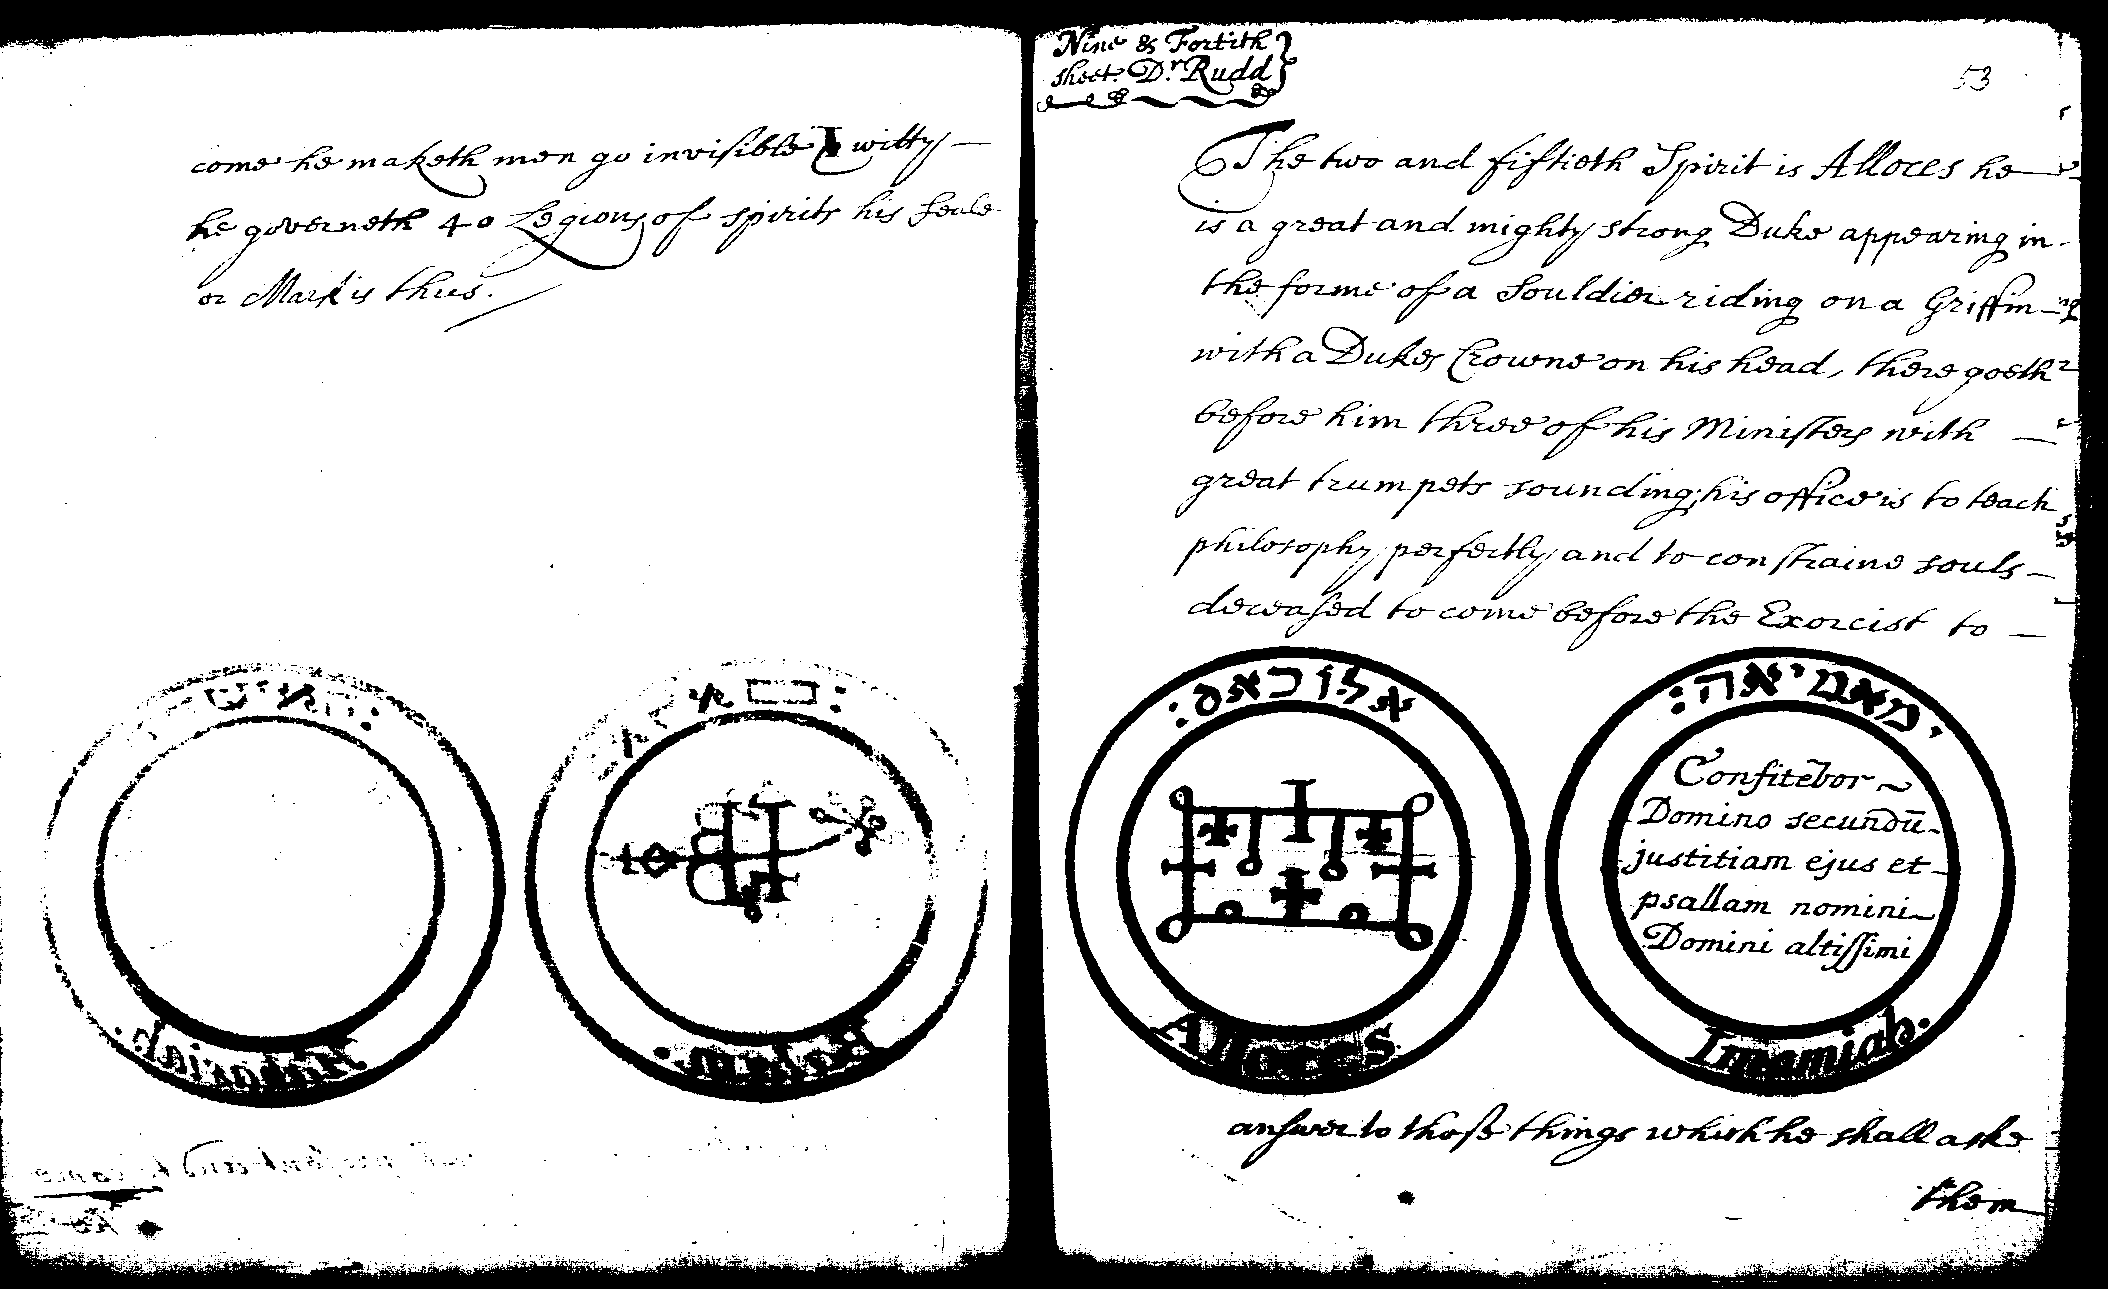 come he maketh men go invisible & witty
he governeth 40 Legions of spirits his Seale
or Mark is thus.
Nine & Fortith
sheet. Dr. Rudd
53
The two and fiftieth Spirit is Alloces he
is a great and mighty strong Duke appearing in
the forme of a Souldier riding on a Griffin
with a Dukes Crowne on his head, there goeth
before him three of his Ministers with
great trumpets sounding; his office is to teach
philosophy perfectly and to constraine souls
deceased to come before the Exorcist to
אלוכאס:
Alloces
ימאמיאה:
Confitebor
Domino secundū
justitiam ejus et
psallam nomini
Domini altissimi
Imamiah.
answer to those things which he shall aske
them